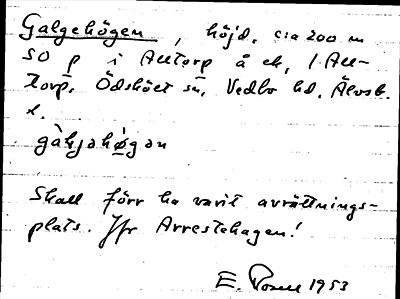 Galgehögen, höjd, c:a 200 m
SO p i Alltorp å ek, 1 All-
torp, Ödsköts sn, Vedbo hd, Älvsb.
l.
gàḷjəhø̀gən
Skall förr ha varit avrättnings-
plats. Jfr Arrestehagen!
E. 1953